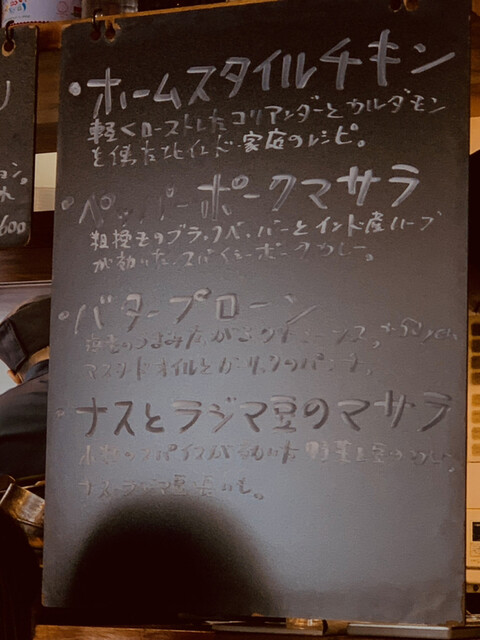 ・ホームスタイルチキン
軽くローストしたコリアンダーとカルダモン
を使た北インド家庭のレシピ。
・ペッパーポークマサラ
粗挽きのブラックペッパーとインド産ハーブ
が効いた、スパイシーポークカレー。
・バタープローン
海老のうまみたっぷり
マスタードオイルとガーリックのパンチ。
・ナスとラジマ豆のマサラ
スパイスが効いた野菜と豆のカレー。
ナス、ラジマ豆
600